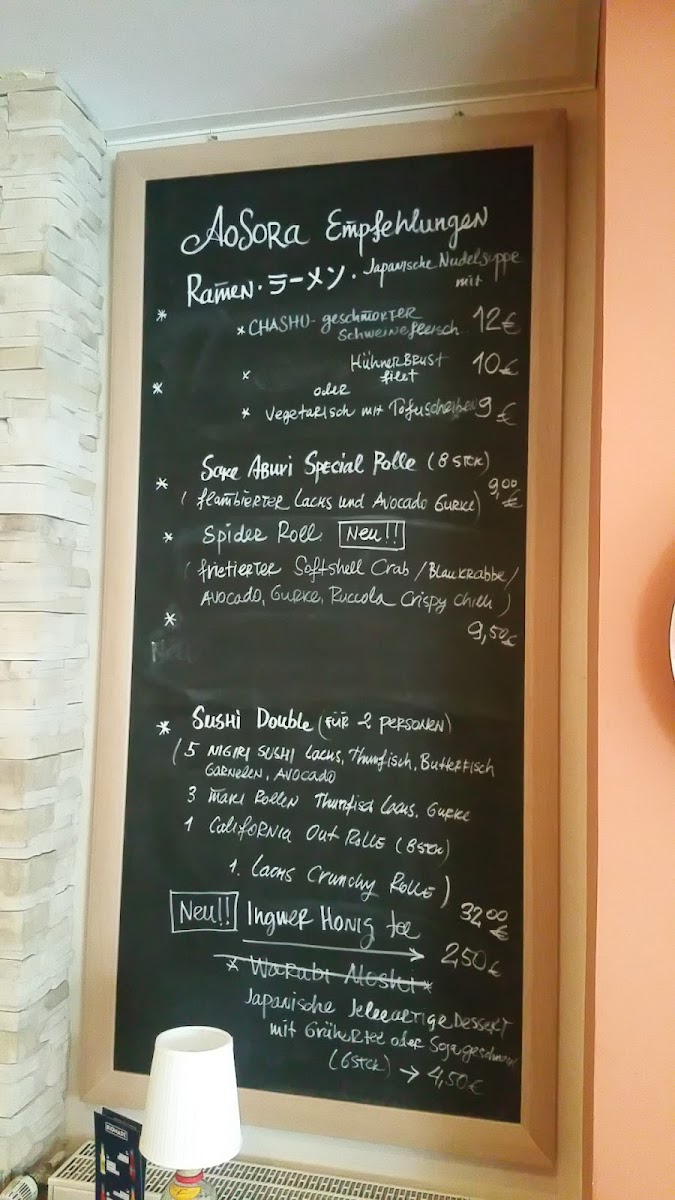 AoSora Empfehlungen
Ramen · ラーメン · Japanische Nudelsuppe
mit
* * CHASHU - geschmorter 12€
Schweinefleisch
* Hühnerbrust 10€
filet
* oder
* Vegetarisch mit Tofuscheiben 9€
Sake Aburi Special Rolle (8 Stck)
* (flambierter Lachs und Avocado Gurke) 9,00€
* Spider Roll Neu!!
(frietierter Softshell Crab /Blaukrabbe/
Avocado, Gurke, Ruccola Crispy Chilli)
* 9,50€
Neu
* Sushi Double (für 2 Personen)
(5 Nigiri Sushi Lachs, Thunfisch, Butterfisch
Garnelen, Avocado
3 Maki Rollen Thunfisch Lachs, Gurke
1 California Out Rolle (8 Stck)
1. Lachs Crunchy Rolle)
32,00€
Neu!! Ingwer Honig tee
→ 2,50€
* Warabi Moshi *
Japanische Jeleeartige Dessert
mit Grühertee oder Sojageschmack
(6 Stck) → 4,50€